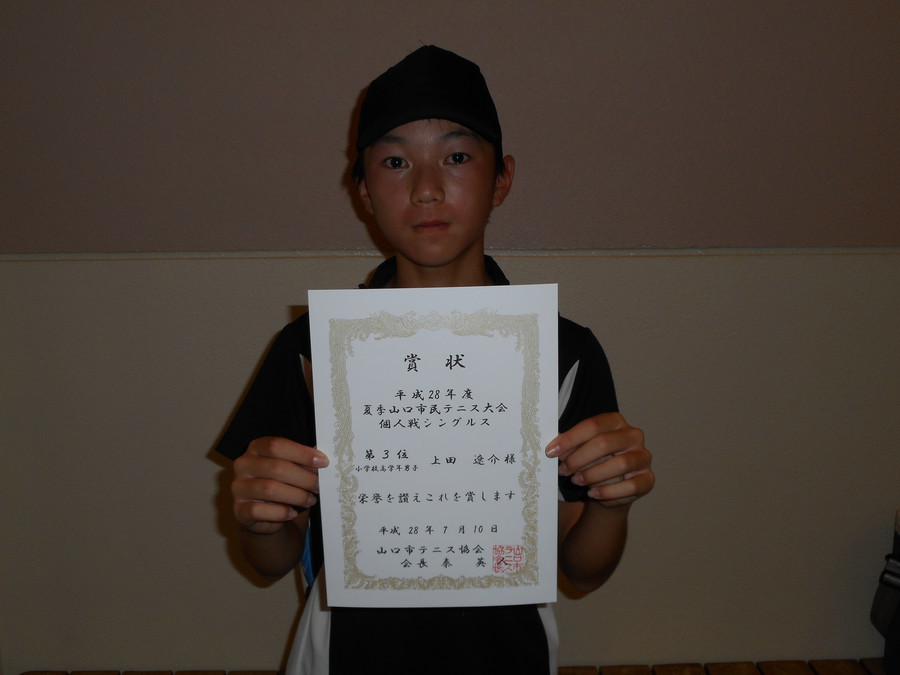 賞状
平成28年度
夏季山口市民テニス大会
個人戦シングルス
第3位 上田 遼介様
小学校高学年男子
栄誉を讃えこれを賞します
平成28年7月10日
山口市テニス協会
会長 秦 英